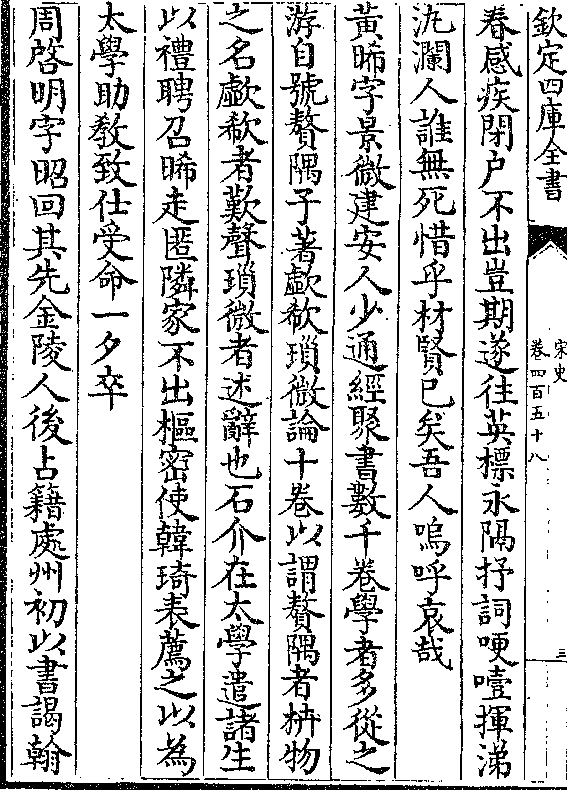 欽定四庫全書
宋史
卷四百五十八
三
春感疾閉户不出豈期遂往英標永隔抒詞哽噎揮涕
汍瀾人誰無死惜乎材賢已矣吾人嗚呼哀哉
黄晞字景微建安人少通經聚書數千卷學者多從之
游自號贅隅子著歔欷瑣微論十卷以謂贅隅者枿物
之名歔欷者歎聲瑣微者述辭也石介在太學遣諸生
以禮聘召晞走匿隣家不出樞密使韓琦表薦之以為
太學助教致仕受命一夕卒
周啓明字昭回其先金陵人後占籍處州初以書謁翰